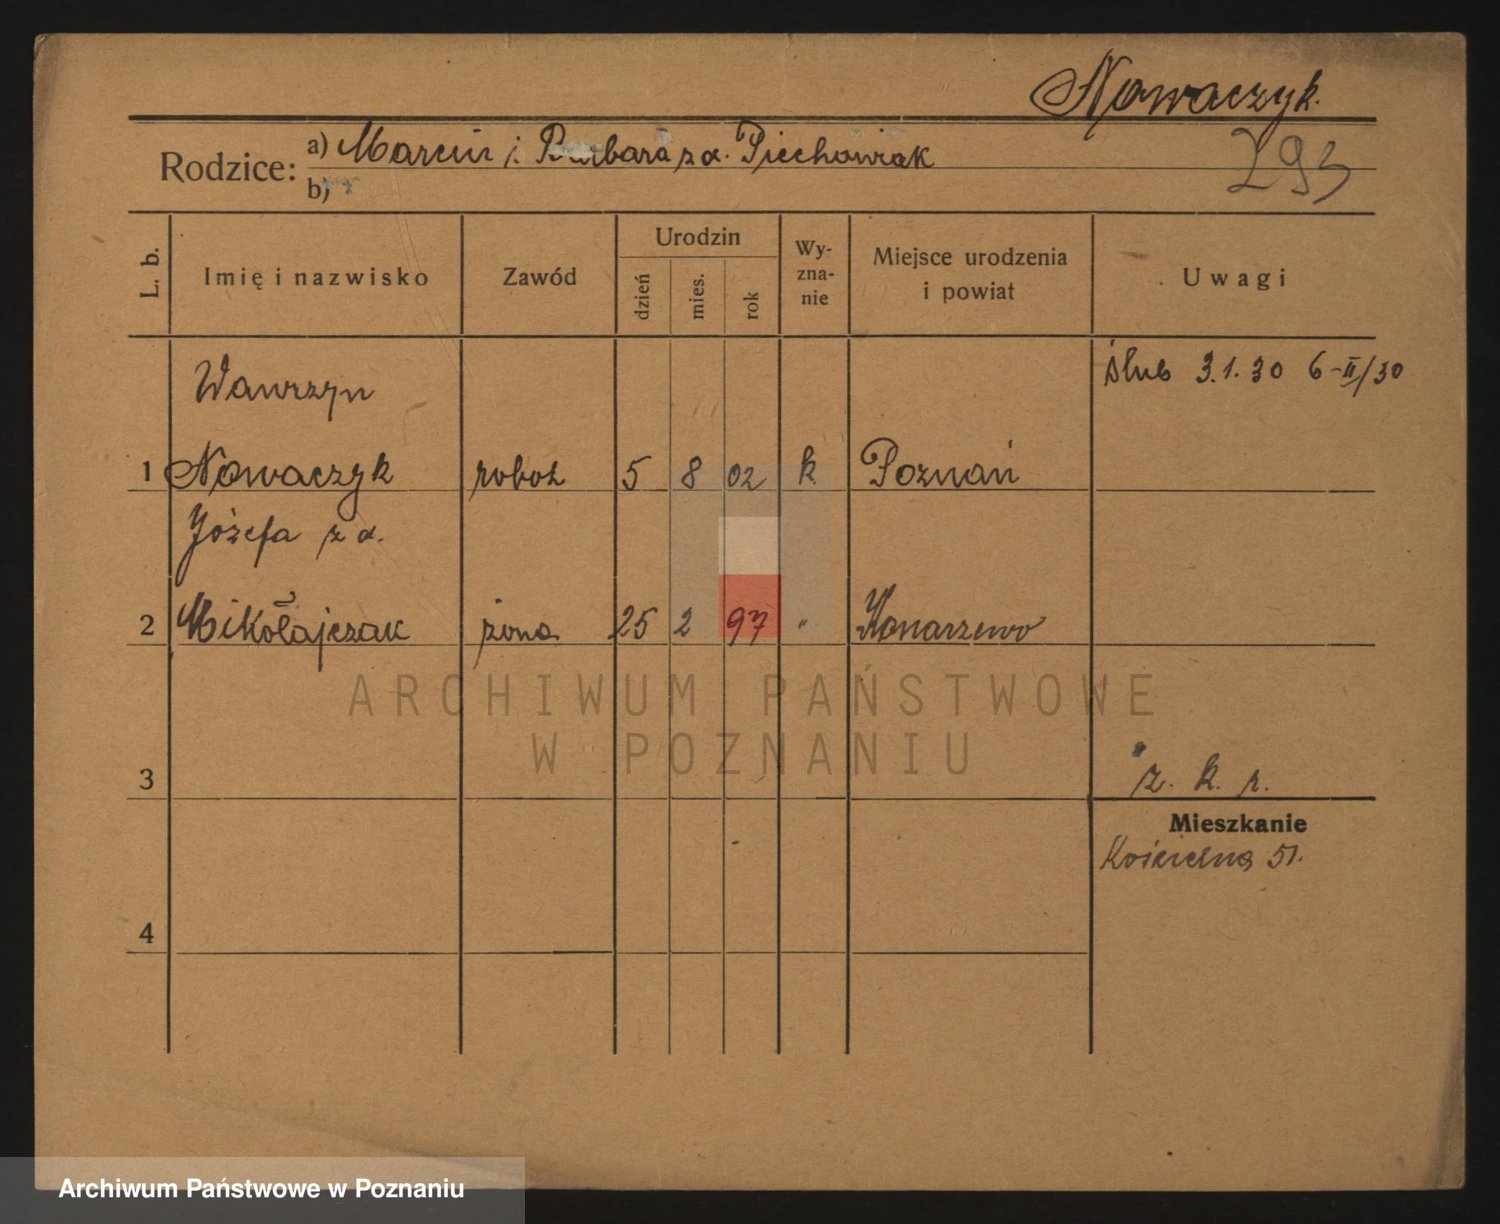 Nowaczyk.
Rodzice: a) Marcin i Barbara z d. Piechowiak
293
b)
L. b.
Imię i nazwisko
Zawód
Urodzin
dzień
mies.
rok
Wy-
zna-
nie
Miejsce urodzenia
i powiat
Uwagi
Wawrzyn
ślub 3.1.30 6-II/30
1 Nowaczyk robot 5 8 02 k Poznań
Józefa z d.
2 Mikołajczak żona 25 2 97 " Konarzewo
ARCHIWUM PAŃSTWOWE
W POZNANIU
3
z. k. r.
Mieszkanie
Kościelna 51.
4
Archiwum Państwowe w Poznaniu